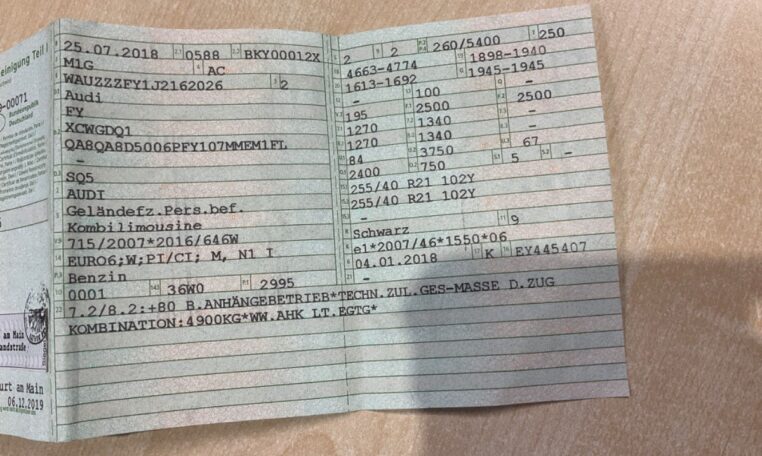 einigung Teil I
-00071
Bundesrepublik
Deutschland
am Main
andstraße
urt am Main
06.12.2019
25.07.2018 0588 BKY00012X
M1G AC
WAUZZZFY1J2162026 2
Audi
FY
XCWGDQ1
QA8QA8D5006PFY107MMEM1FL
-
SQ5
AUDI
Geländefz.Pers.bef.
Kombilimousine
715/2007*2016/646W
EURO6;W;PI/CI; M, N1 I
Benzin
0001 36W0 2995
7.2/8.2:+80 B.ANHÄNGEBETRIEB*TECHN.ZUL.GES-MASSE D.ZUG
KOMBINATION:4900KG*WW.AHK LT.EGTG*
2 2 260/5400 250
4663-4774 1898-1940
1613-1692 1945-1945
- 100 -
195 2500 2500
1270 1340 -
1270 1340 -
84 3750 67
2400 750 5 -
255/40 R21 102Y
255/40 R21 102Y
-
Schwarz 9
e1*2007/46*1550*06
04.01.2018 K EY445407
-